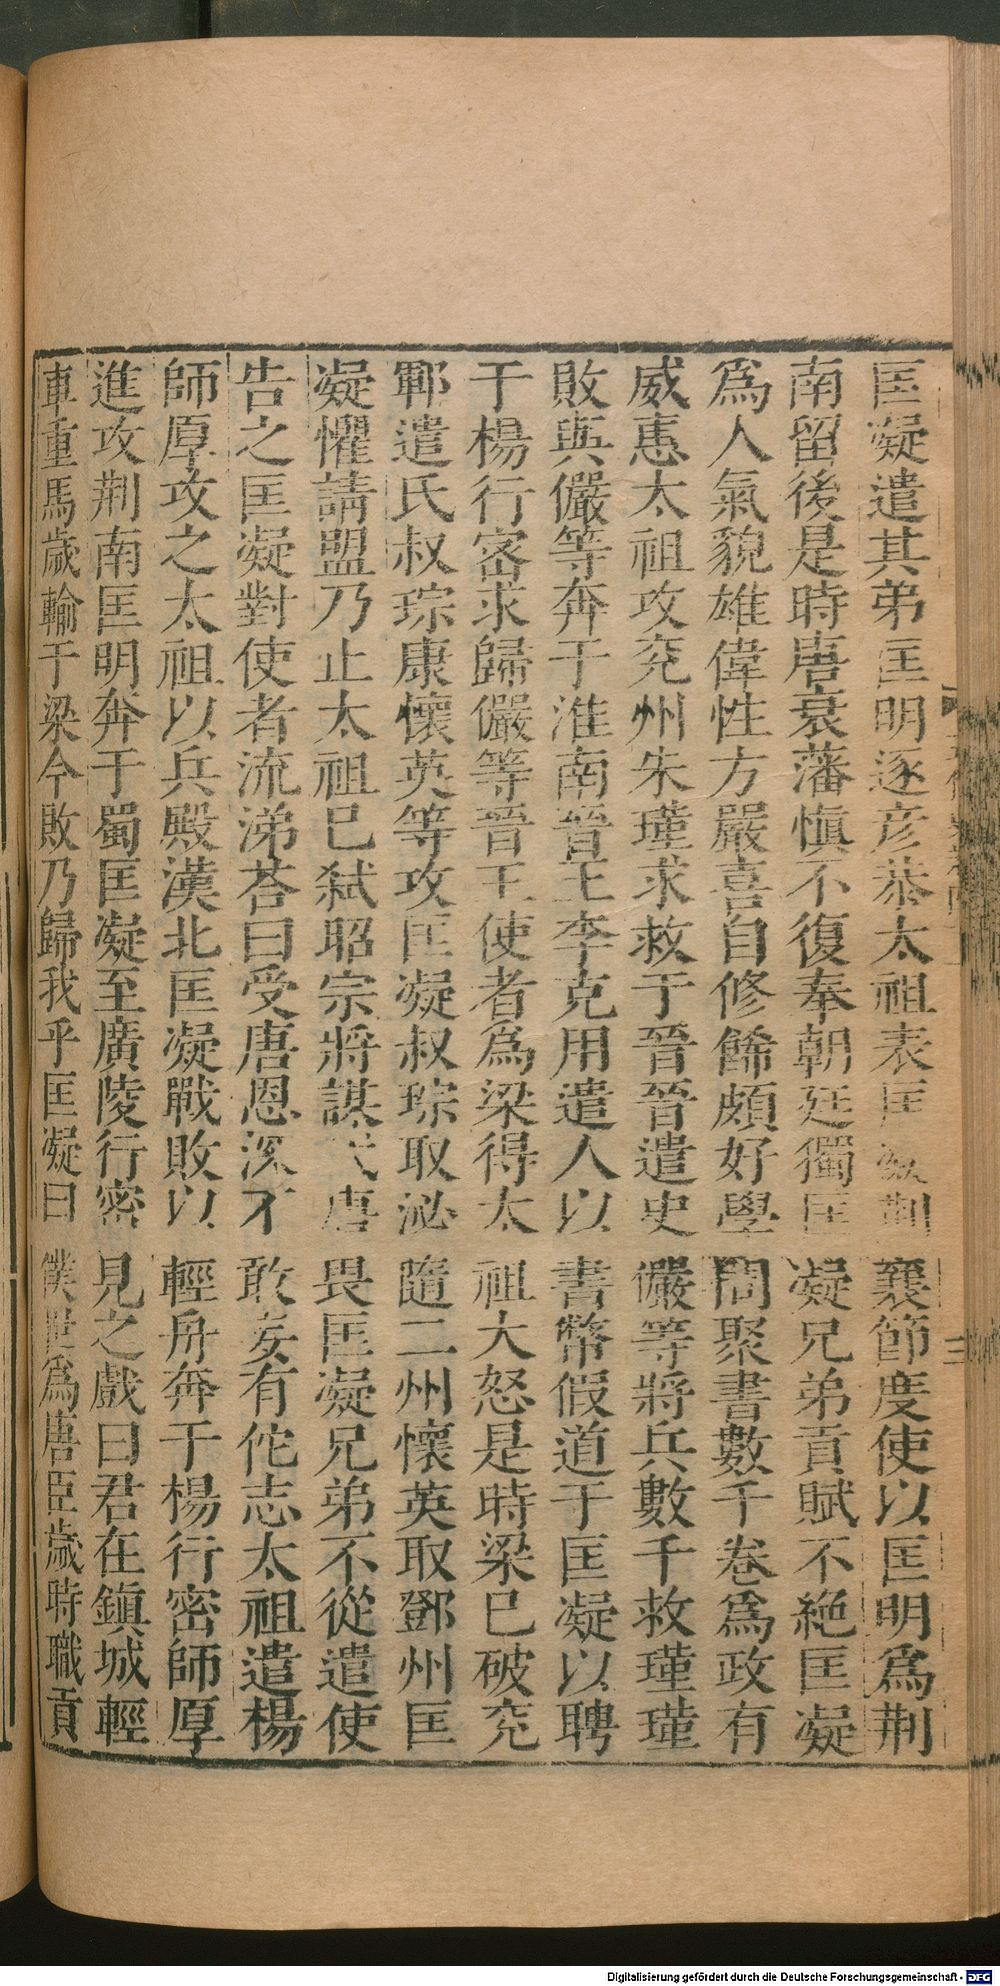 匡凝遣其弟匡明逐彦恭太祖表匡凝荆襄節度使以匡明爲荆
南留後是時唐衰藩愼不復奉朝廷獨匡凝兄弟貢賦不絶匡凝
爲人氣貌雄偉性方嚴喜自修餙頗好學問聚書數千卷爲政有
威惠太祖攻兖州朱瑾求救于晉晉遣史儼等將兵數千救瑾瑾
敗與儼等奔于淮南晉王李克用遣人以書幣假道于匡凝以聘
于楊行密求歸儼等晉王使者爲梁得太祖大怒是時梁已破兖
鄆遣氏叔琮康懷英等攻匡凝叔琮取泌隨二州懷英取鄧州匡
凝懼請盟乃止太祖已弑昭宗將謀代唐畏匡凝兄弟不從遣使
告之匡凝對使者流涕荅曰受唐恩深不敢妄有佗志太祖遣楊
師厚攻之太祖以兵殿漢北匡凝戰敗以輕舟奔于楊行密師厚
進攻荆南匡明奔于蜀匡凝至廣陵行密見之戲曰君在鎮城輕
車重馬歲輸于梁今敗乃歸我乎匡凝曰僕世爲唐臣歲時職貢
三
Digitalisierung gefördert durch die Deutsche Forschungsgemeinschaft - DFG